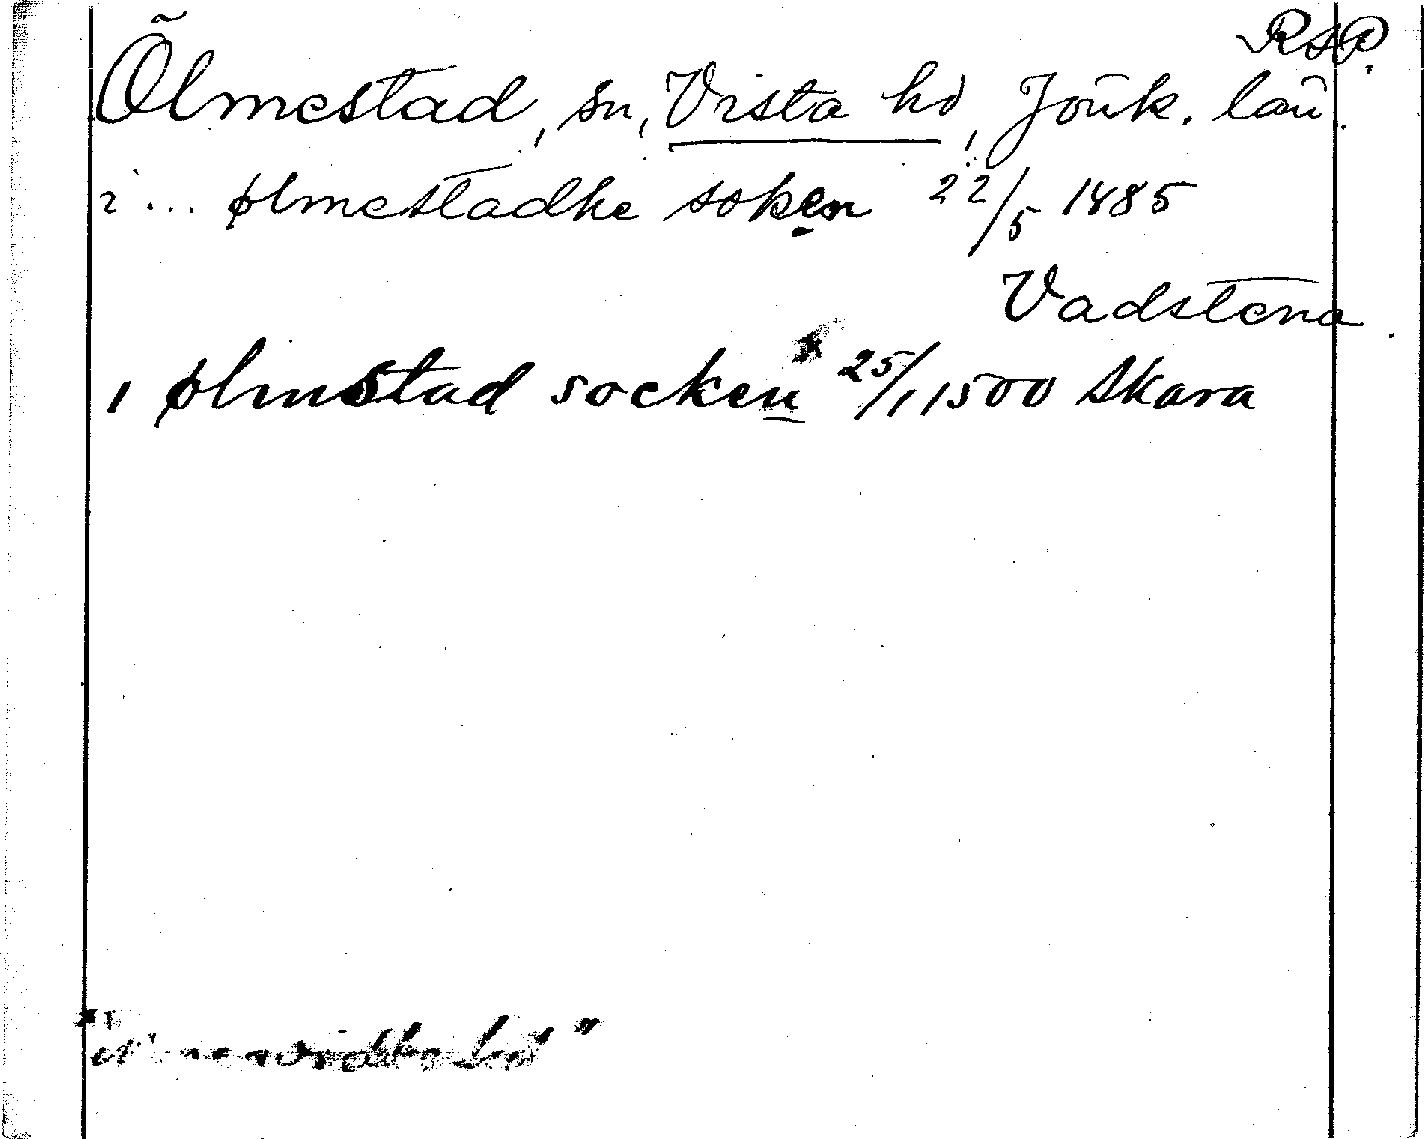 RAP.
Ölmestad, sn, Vista hd, Jönk. län.
i ... ølmestadhe soken 22/5 1485
Vadstena.
i ølmstad socken 25/1 1500 Skara